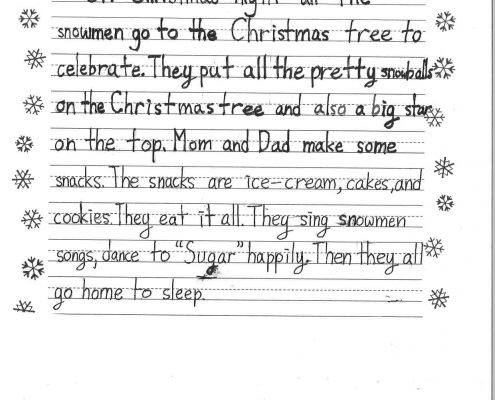 On Christmas night all the
snowmen go to the Christmas tree to
celebrate. They put all the pretty snowballs
on the Christmas tree and also a big star
on the top. Mom and Dad make some
snacks. The snacks are ice-cream, cakes, and
cookies. They eat it all. They sing snowmen
songs, dance to "Sugar" happily. Then they all
go home to sleep.